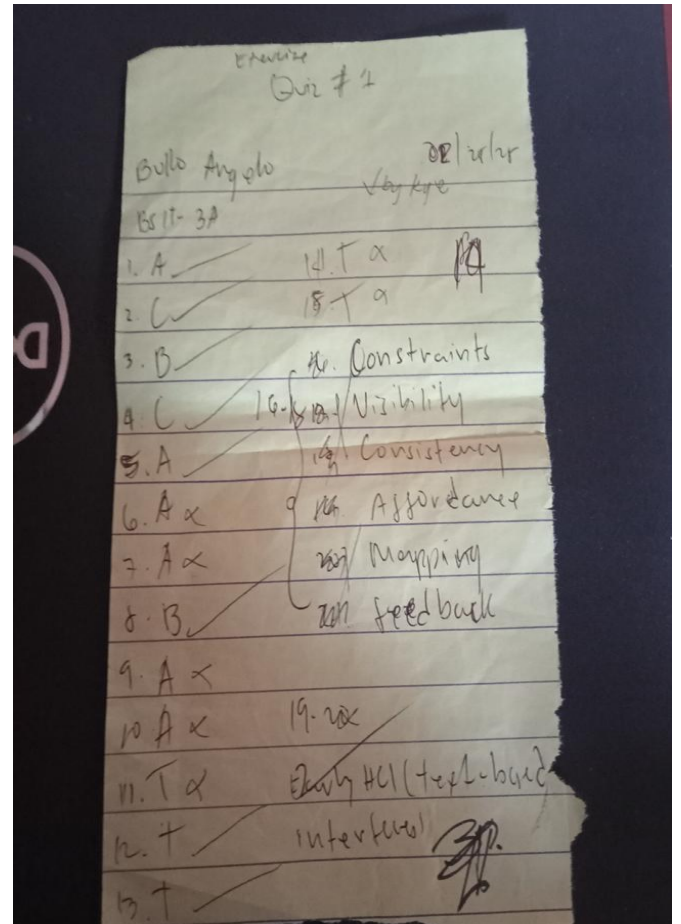 Exercise
Quiz # 1
Bullo Angelo
✓by kye
BSIT-3A
1. A
2. C
3. B
4. C
5. A
6. A x
7. A x
8. B
9. A x
10 A x
11. T x
12. T
13. T
14. T x
15. T x
Constraints
Visibility
Consistency
Affordance
Mapping
feedback
19-20x
Early HCI (text-based
D